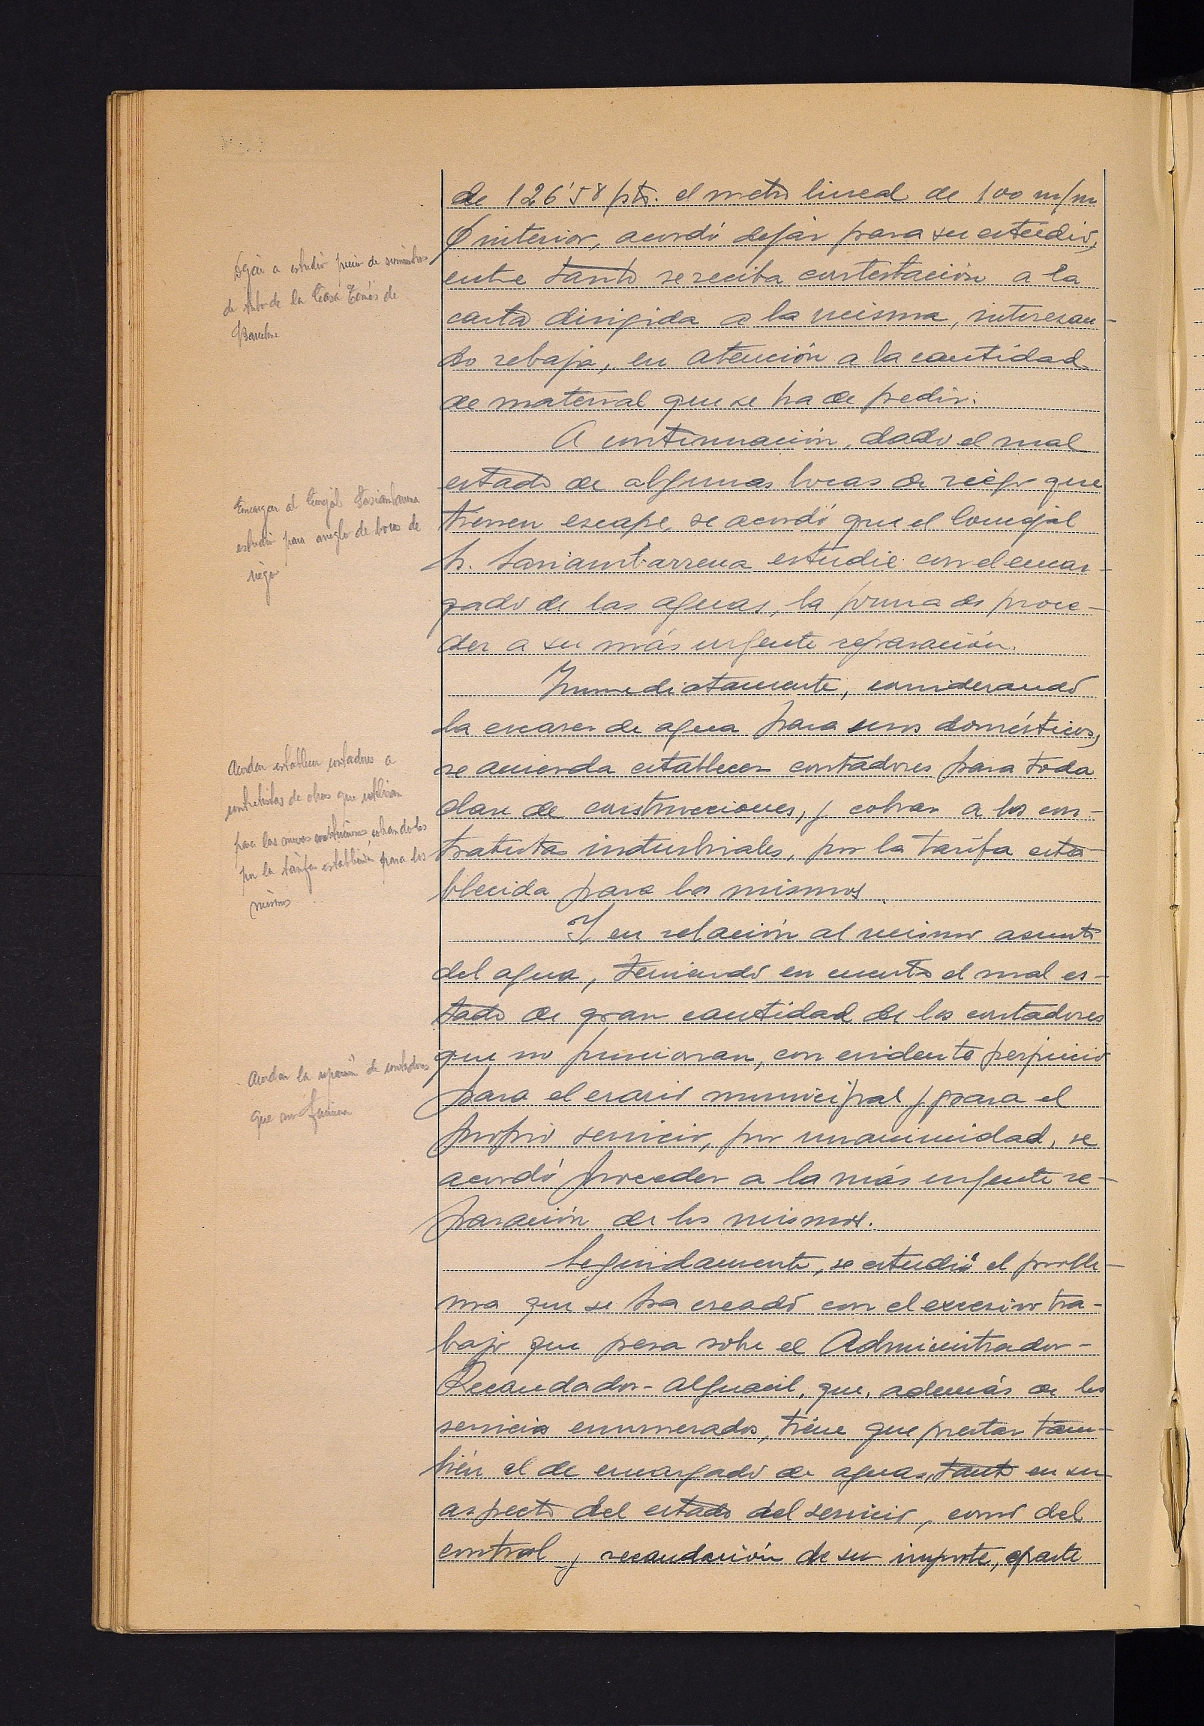 de 126'58 pts. el metro lineal de 100 m/m
Ø interior, acordó dejar para su estudio,
entre tanto se reciba contestación a la
carta dirigida a la misma, interesan-
do rebaja, en atención a la cantidad
de material que se ha de pedir.
A continuación, dado el mal
estado de algunas bocas de riego que
tienen escape, se acordó que el Concejal
Sr. Sasiambarrena estudie con el encar-
gado de las aguas, la forma de proce-
der a su más urgente reparación.
Inmediatamente, considerando
la escasez de agua para usos domésticos,
se acuerda establecer contadores para toda
clase de construcciones, y cobrar a los con-
tratistas industriales, por la tarifa esta-
blecida para los mismos.
Y en relación al mismo asunto
del agua, teniendo en cuenta el mal es-
tado de gran cantidad de los contadores
que no funcionan, con evidente perjuicio
para el erario municipal y para el
propio servicio, por unanimidad, se
acordó proceder a la más urgente re-
paración de los mismos.
Seguidamente, se estudió el proble-
ma que se ha creado con el excesivo tra-
bajo que pesa sobre el Administrador-
Recaudador-Alguacil, que, además de los
servicios enumerados, tiene que prestar tam-
bién el de encargado de aguas, tanto en su
aspecto del estado del servicio, como del
control y recaudación de su importe, aparte
Dejar a estudio precio de suministro
de tubo de la Casa de
Barcelona
Encargar al Concejal Sasiambarrena
estudio para arreglo de bocas de
riego
Acordar establecer contadores a
contratistas de obras que utilizan
para las nuevas construcciones cobrandoles
por la tarifa establecida para los
mismos
Acordar la reparación de contadores
que no funcionan